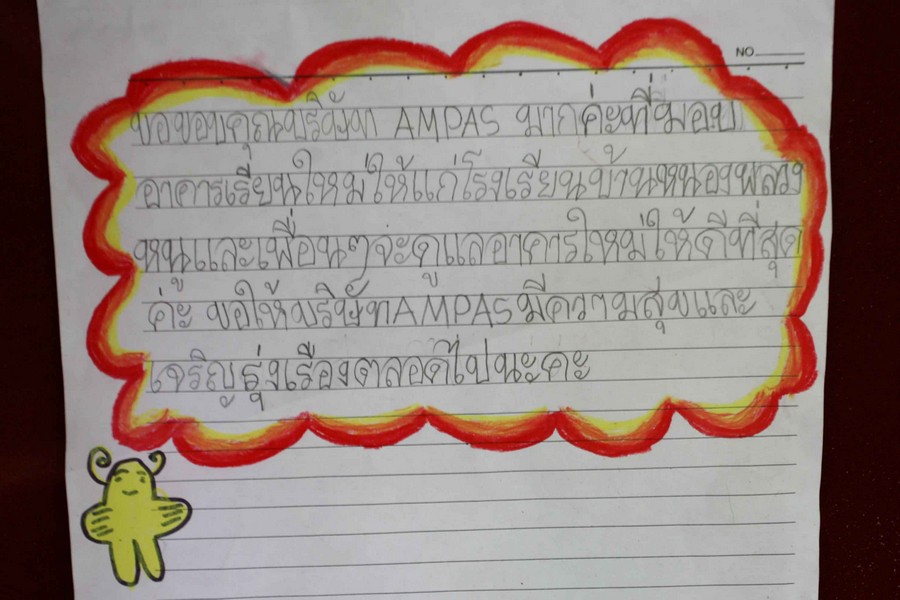 NO.
ขอขอบคุณบริษัท AMPAS มากค่ะที่มอบ
อาคารเรียนใหม่ให้แก่โรงเรียนบ้านหนองพลวง
หนูและเพื่อนๆจะดูแลอาคารใหม่ให้ดีที่สุด
ค่ะ ขอให้บริษัทAMPASมีความสุขและ
เจริญรุ่งเรืองตลอดไปนะคะ